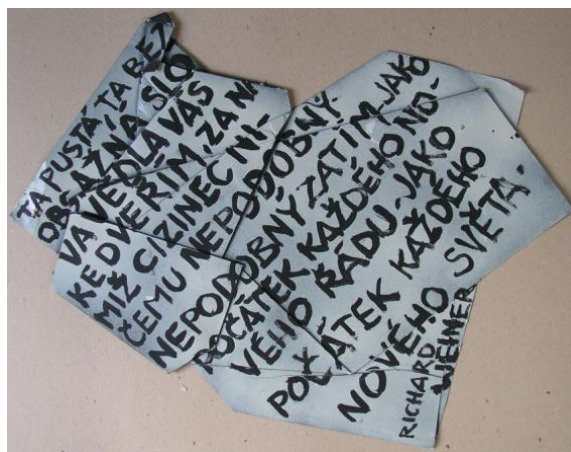 TA PUSTÁ TA BEZ
OBSAŽNÁ SLO
VA VEDLA VÁS
KE DVEŘÍM ZA NI
MIŽ CIZINEC NI-
ČEMU NEPODOBNÝ.
NEPODOBNÝ ZATÍM JAKO
POČÁTEK KAŽDÉHO NO-
VÉHO ŘÁDU. JAKO
POČÁTEK KAŽDÉHO
NOVÉHO SVĚTA.
RICHARD
WEINER